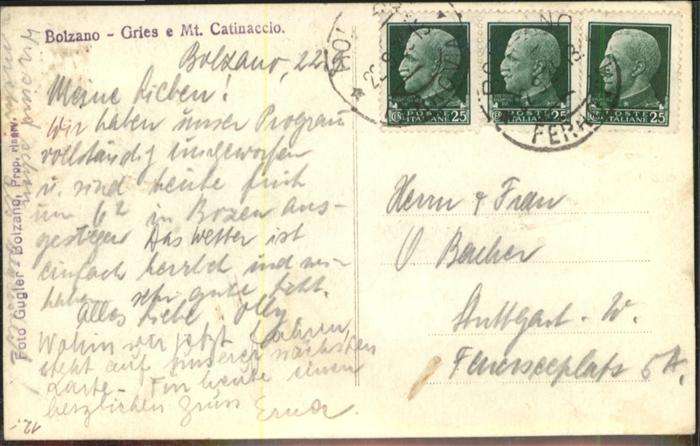 Bolzano - Gries e Mt. Catinaccio.
Bolzano, 22.
Meine Lieben!
Wir haben unser Program
vollständig umgeworfen
u. sind heute früh
um 6² in Bozen aus-
gestiegen Das Wetter ist
einfach herrlich und wir
haben sehr gute Zeit.
Alles Liebe Olly
Wohin wir jetzt fahren,
steht auf unserer nächsten
Karte - Für heute einen
herzlichen Gruss Erna
Foto Gugler - Bolzano, Prop. riserv.
POSTE ITALIANE 25
POSTE ITALIANE 25
POSTE ITALIANE 25
FERR
Herrn & Frau
O Bacher
Stuttgart - W.
Feuerseeplatz 5A.